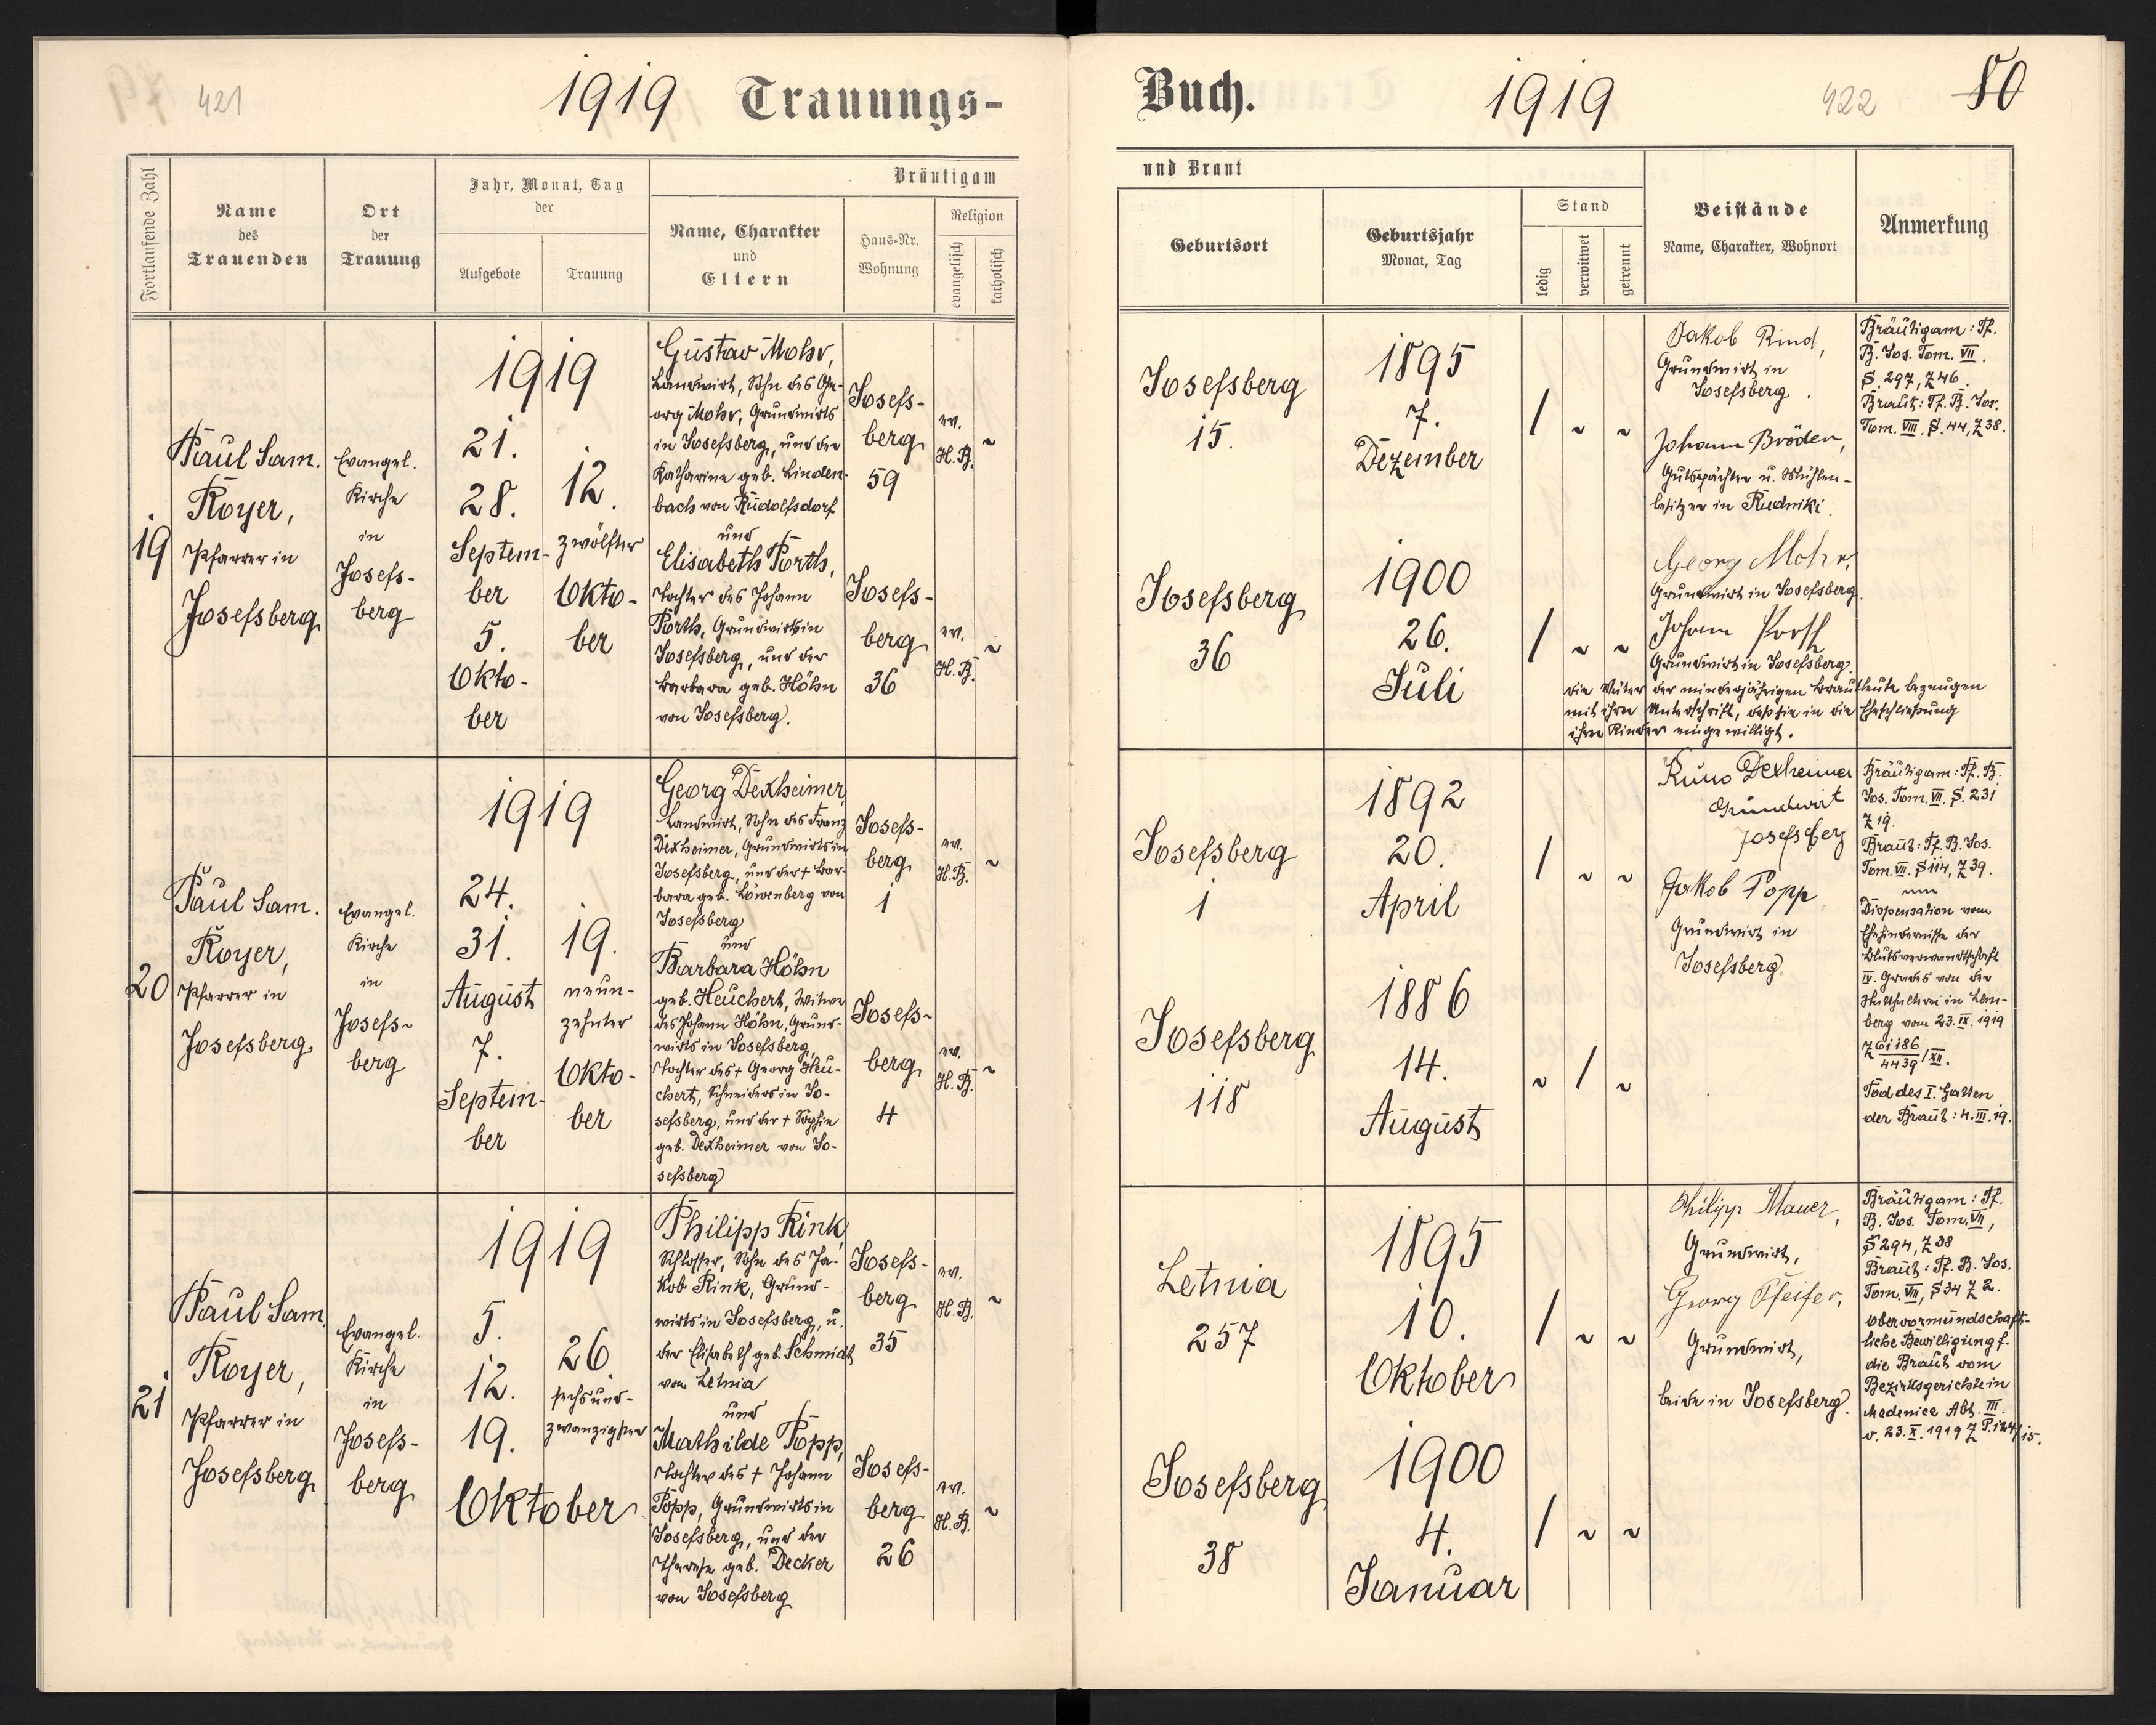 421
1919 Trauungs-
Fortlaufende Zahl
Name
des
Trauenden
Ort
der
Trauung
Jahr, Monat, Tag
der
Aufgebote
Trauung
Bräutigam
Name, Charakter
und
Eltern
Haus-Nr.
Wohnung
Religion
evangelisch
katholisch
19
Paul Sam.
Royer,
Pfarrer in
Josefsberg
Evangel.
Kirche
in
Josefs-
berg
1919
21.
28.
Septem-
ber
5.
Okto-
ber
12.
zwölfter
Okto-
ber
Gustav Mohr,
Landwirt, Sohn des Ge-
org Mohr, Grundwirts
in Josefsberg, und der
Katharine geb. Linden-
bach von Rudolfsdorf
und
Elisabeth Porth,
Tochter des Johann
Porth, Grundwirts in
Josefsberg, und der
Barbara geb. Höhn
von Josefsberg.
Josefs-
berg
59
ev.
H. B.
~
Josefs-
berg
36
ev.
H. B.
~
20
Paul Sam.
Royer,
Pfarrer in
Josefsberg
Evangel.
Kirche
in
Josefs-
berg
1919
24.
31.
August
7.
Septem-
ber
19.
neun-
zehnter
Okto-
ber
Georg Dexheimer,
Landwirt, Sohn des Franz
Dexheimer, Grundwirts in
Josefsberg, und der + Bar-
bara geb. Löwenberg von
Josefsberg
und
Barbara Höhn
geb. Heuchert, Witwe
des Johann Höhn, Grund-
wirts in Josefsberg,
Tochter des + Georg Heu-
chert, Schneiders in Jo-
sefsberg, und der + Sophie
geb. Dexheimer von Jo-
sefsberg
Josefs-
berg
1
ev.
H. B.
~
Josefs-
berg
4
ev.
H. B.
~
21
Paul Sam.
Royer,
Pfarrer in
Josefsberg
Evangel.
Kirche
in
Josefs-
berg
1919
5.
12.
19.
Oktober
26.
sechsund-
zwanzigster
Philipp Rink,
Schlosser, Sohn des Ja-
kob Rink, Grund-
wirts in Josefsberg, u.
der Elisabeth geb. Schmidt
von Letnia
und
Mathilde Popp,
Tochter des + Johann
Popp, Grundwirts in
Josefsberg, und der
Therese geb. Decker
von Josefsberg
Josefs-
berg
35
ev.
H. B.
~
Josefs-
berg
26
ev.
H. B.
~
Buch. 1919
422
80
und Braut
Geburtsort
Geburtsjahr
Monat, Tag
Stand
ledig
verwitwet
getrennt
Beistände
Name, Charakter, Wohnort
Anmerkung
Josefsberg
15.
1895
7.
Dezember
/ ~ ~
Jakob Rind,
Grundwirt in
Josefsberg.
Johann Bröder,
Gutspächter u. Mühlen-
besitzer in Rudniki.
Bräutigam: Tf.
B. Jos. Tom. VII.
S. 297, Z 46.
Braut: Tf. B. Jos.
Tom. VIII. S. 44, Z 38.
Josefsberg
36
1900
26.
Juli
/ ~ ~
Georg Mohr,
Grundwirt in Josefsberg.
Johann Porth
Grundwirt in Josefsberg.
Die Väter der minderjährigen Brautleute bezeugen
mit ihrer Unterschrift, daß sie in die Eheschließung
ihrer Kinder eingewilligt.
Josefsberg
1
1892
20.
April
/ ~ ~
Kuno Dexheimer
Grundwirt
Josefsberg
Jakob Popp
Grundwirt in
Josefsberg
Bräutigam: Tf. B.
Jos. Tom. VII. S. 231
Z 19.
Braut: Tf. B. Jos.
Tom. VII. S 114, Z 39.
Dispensation vom
Ehehindernisse der
Blutsverwandtschaft
IV. Grades von der
Statthalterei in Lem-
berg vom 23. IX. 1919
Z 61186/4439/XII.
Tod des I. Gatten
der Braut: 4. III. 19.
Josefsberg
118
1886
14.
August
~ / ~
Letnia
257
1895
10.
Oktober
/ ~ ~
Philipp Mauer,
Grundwirt,
Georg Pfeifer,
Grundwirt,
beide in Josefsberg.
Bräutigam: Tf.
B. Jos. Tom. VII,
S 294, Z 38
Braut: Tf. B. Jos.
Tom. VIII, S 34 Z 2.
Obervormundschaft-
liche Bewilligung f.
die Braut vom
Bezirksgerichte in
Medenice Abt. III.
v. 23. X. 1919 Z P. 124/15.
Josefsberg
38
1900
4.
Januar
/ ~ ~